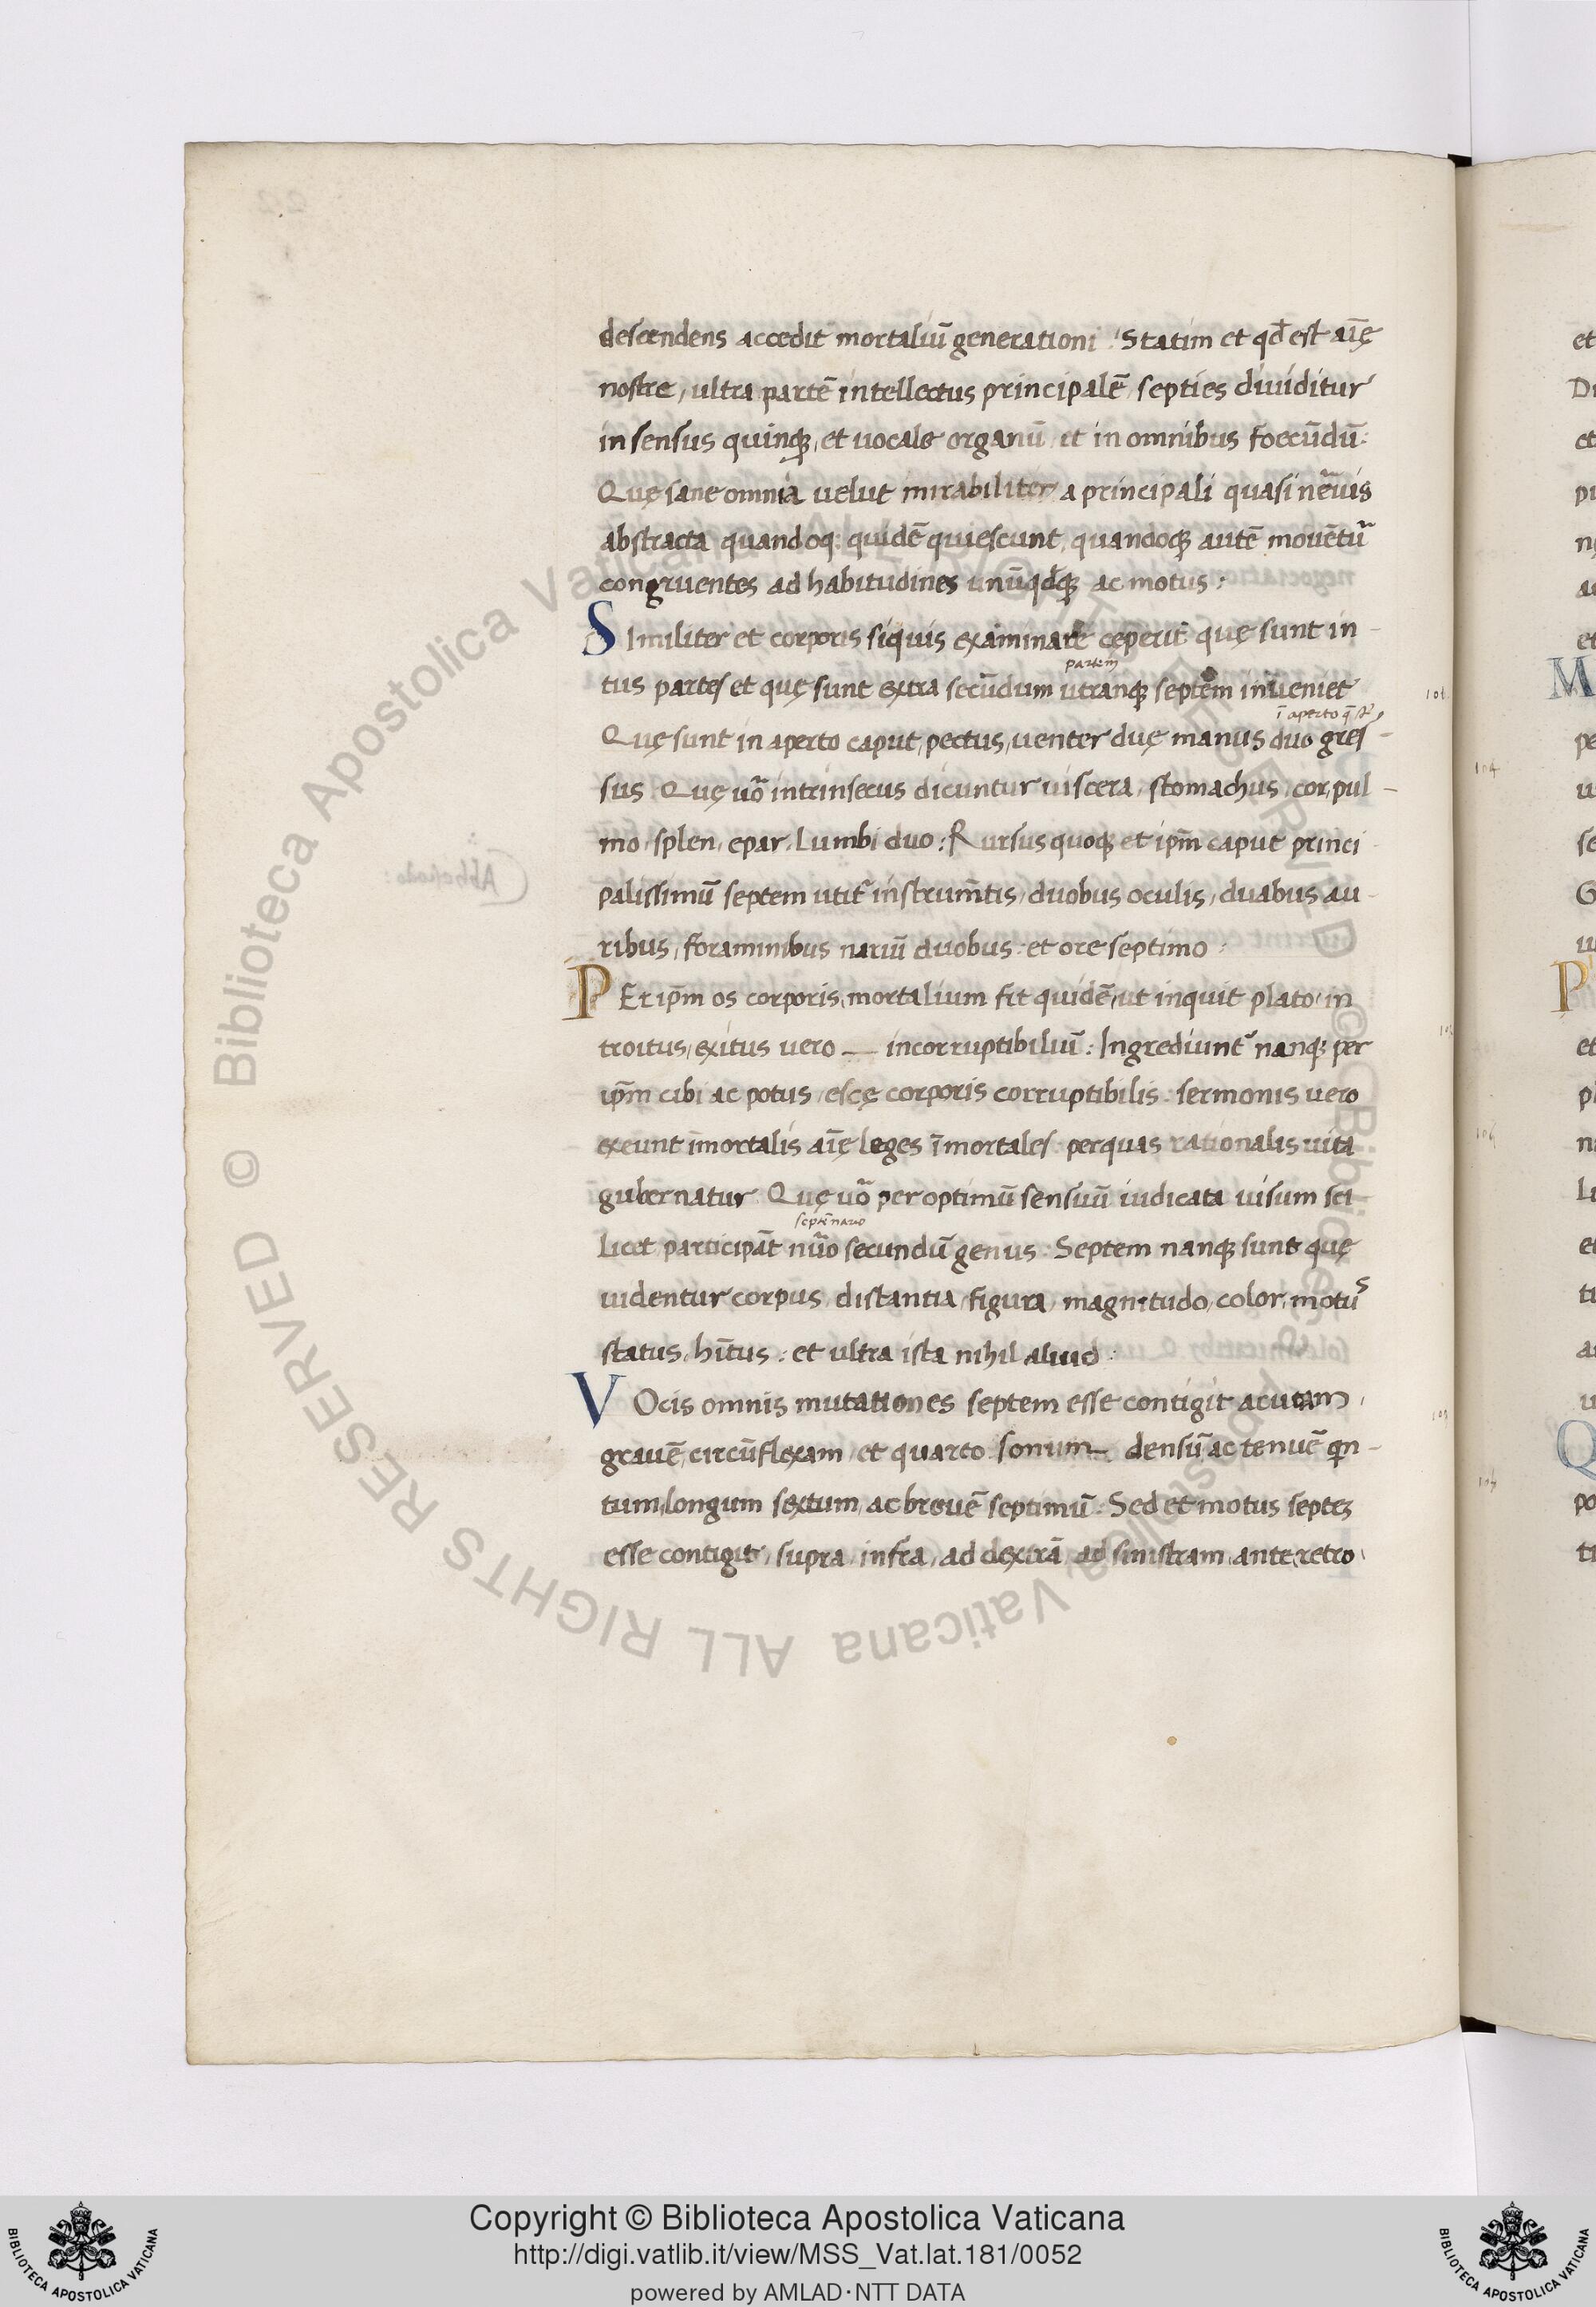 descendens accedit mortaliū generationi : Statim et qđ est aīę
nostre, ultra partē intellectus principalē septies diuiditur
in sensus quinqꝫ, et uocale organū, et in omnibus foecūdū:
Quę sane omnia velut mirabiliter a principali quasi neruis
abstracta quandoqꝫ quidē quiescunt, quandoqꝫ autē mouētur
congruentes ad habitudines unūqđqꝫ ac motus :
SImiliter et corporis siquis examinare ceperit quę sunt in-
partem
tus partes et quę sunt extra secūdum utranqꝫ septem inueniet
ī aperto q̄ st̄
Quę sunt in aperto caput, pectus, uenter duę manus duo gres-
sus. Quę uō intrinsecus dicuntur uiscera, stomachus, cor, pul-
mo, splen, epar, Lumbi duo: Rursus quoqꝫ et ip̄m caput princi
palissimū septem utit̄ instrum̄tis, duobus oculis, duabus au-
ribus, foraminibus nariū duobus et ore septimo :
PEr ip̄m os corporis mortalium fit quidē, ut inquit plato, in
troitus, exitus uero — incorruptibiliū : Ingrediunt̄ nanqꝫ per
ip̄m cibi ac potus, escę corporis corruptibilis. sermonis uero
exeunt īmortalis aīę leges īmortales perquas rationalis uita
gubernatur. Quę uō per optimū sensuū iudicata uisum sci
septēnario
licet participāt nūo secundū genus : Septem nanqꝫ sunt quę
uidentur corpus, distantia, figura, magnitudo, color, motus
status, hītus : et ultra ista nihil aliud :
VOcis omnis mutationes septem esse contigit acutam,
grauē, circūflexam, et quarto sonum — densū ac tenuē qin-
tum, longum sextum, ac breuē septimū : Sed et motus septeꝫ
esse contigit, supra, infra, ad dextrā, ad sinistram, ante, retro,
et
Di
et
M
pe
104
u
se
G
P
et
pl
106
Li
et
Q
po
101
Copyright © Biblioteca Apostolica Vaticana
http://digi.vatlib.it/view/MSS_Vat.lat.181/0052
powered by AMLAD·NTT DATA
BIBLIOTECA APOSTOLICA VATICANA
BIBLIOTECA APOSTOLICA VATICANA
© Biblioteca Apostolica Vaticana ALL RIGHTS RESERVED
© Biblioteca Apostolica Vaticana ALL RIGHTS RESERVED